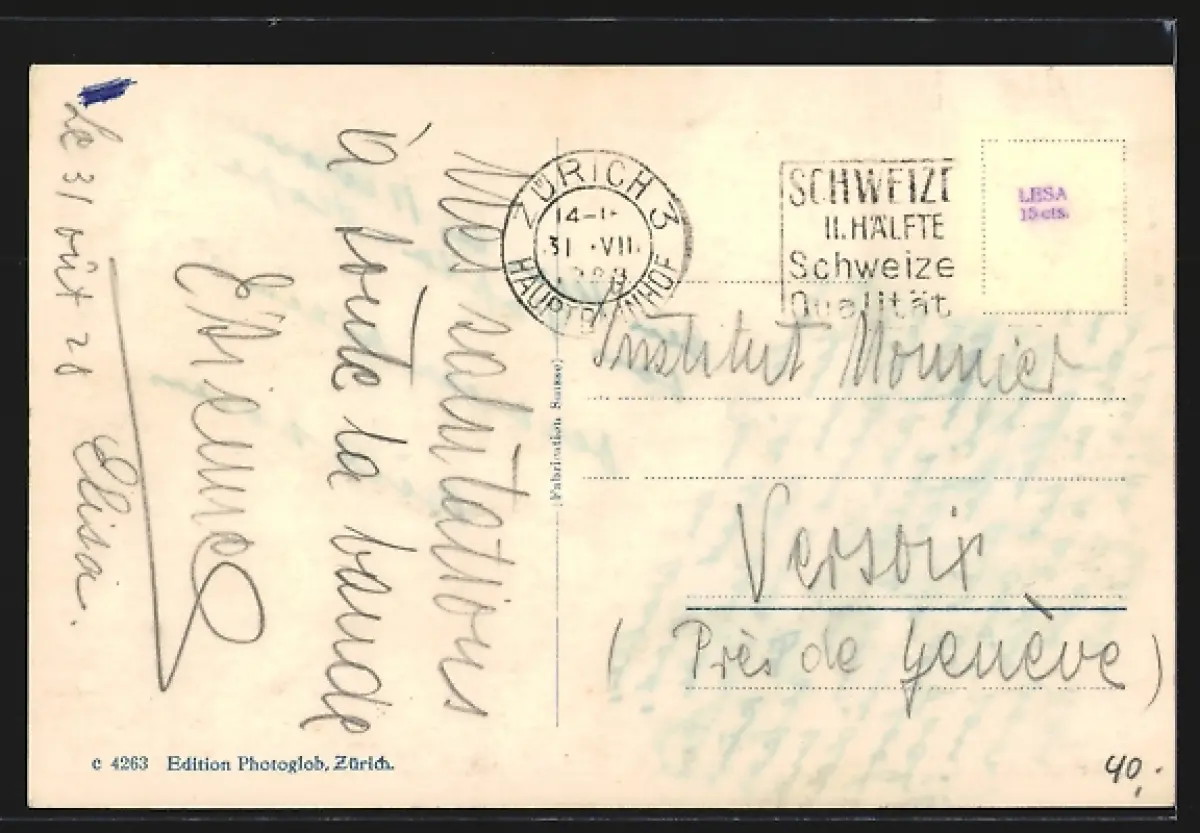 Mes salutations
à toute la bande
Etienne
Le 31 oût 28
Elisa.
ZÜRICH 3
14-1
31. VII.
HAUPTBAHNHOF
SCHWEIZE
II. HÄLFTE
Schweize
Qualität
LESA
15 cts.
Institut Monnier
Versoix
(Près de Genève)
(Fabrication Suisse)
c 4263 Edition Photoglob, Zürich.
40.